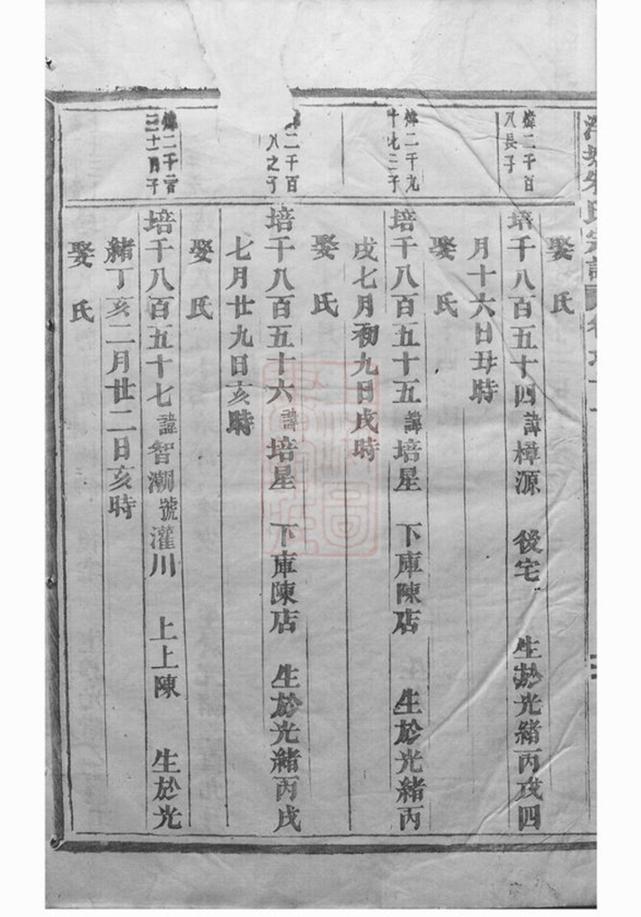 朱氏宗譜
娶氏
二千百
八長子
培千八百五十四諱樟源 後宅 生於光緒丙戌四
月十六日丑時
娶氏
二千九
十七二子
培千八百五十五諱培星 下庫陳店 生於光緒丙
戌七月初九日戌時
娶氏
二千百
八之子
培千八百五十六諱培星 下庫陳店 生於光緒丙戌
七月廿九日亥時
娶氏
二千
三十子
培千八百五十七諱智潮號灌川 上上陳 生於光
緒丁亥二月廿二日亥時
娶氏